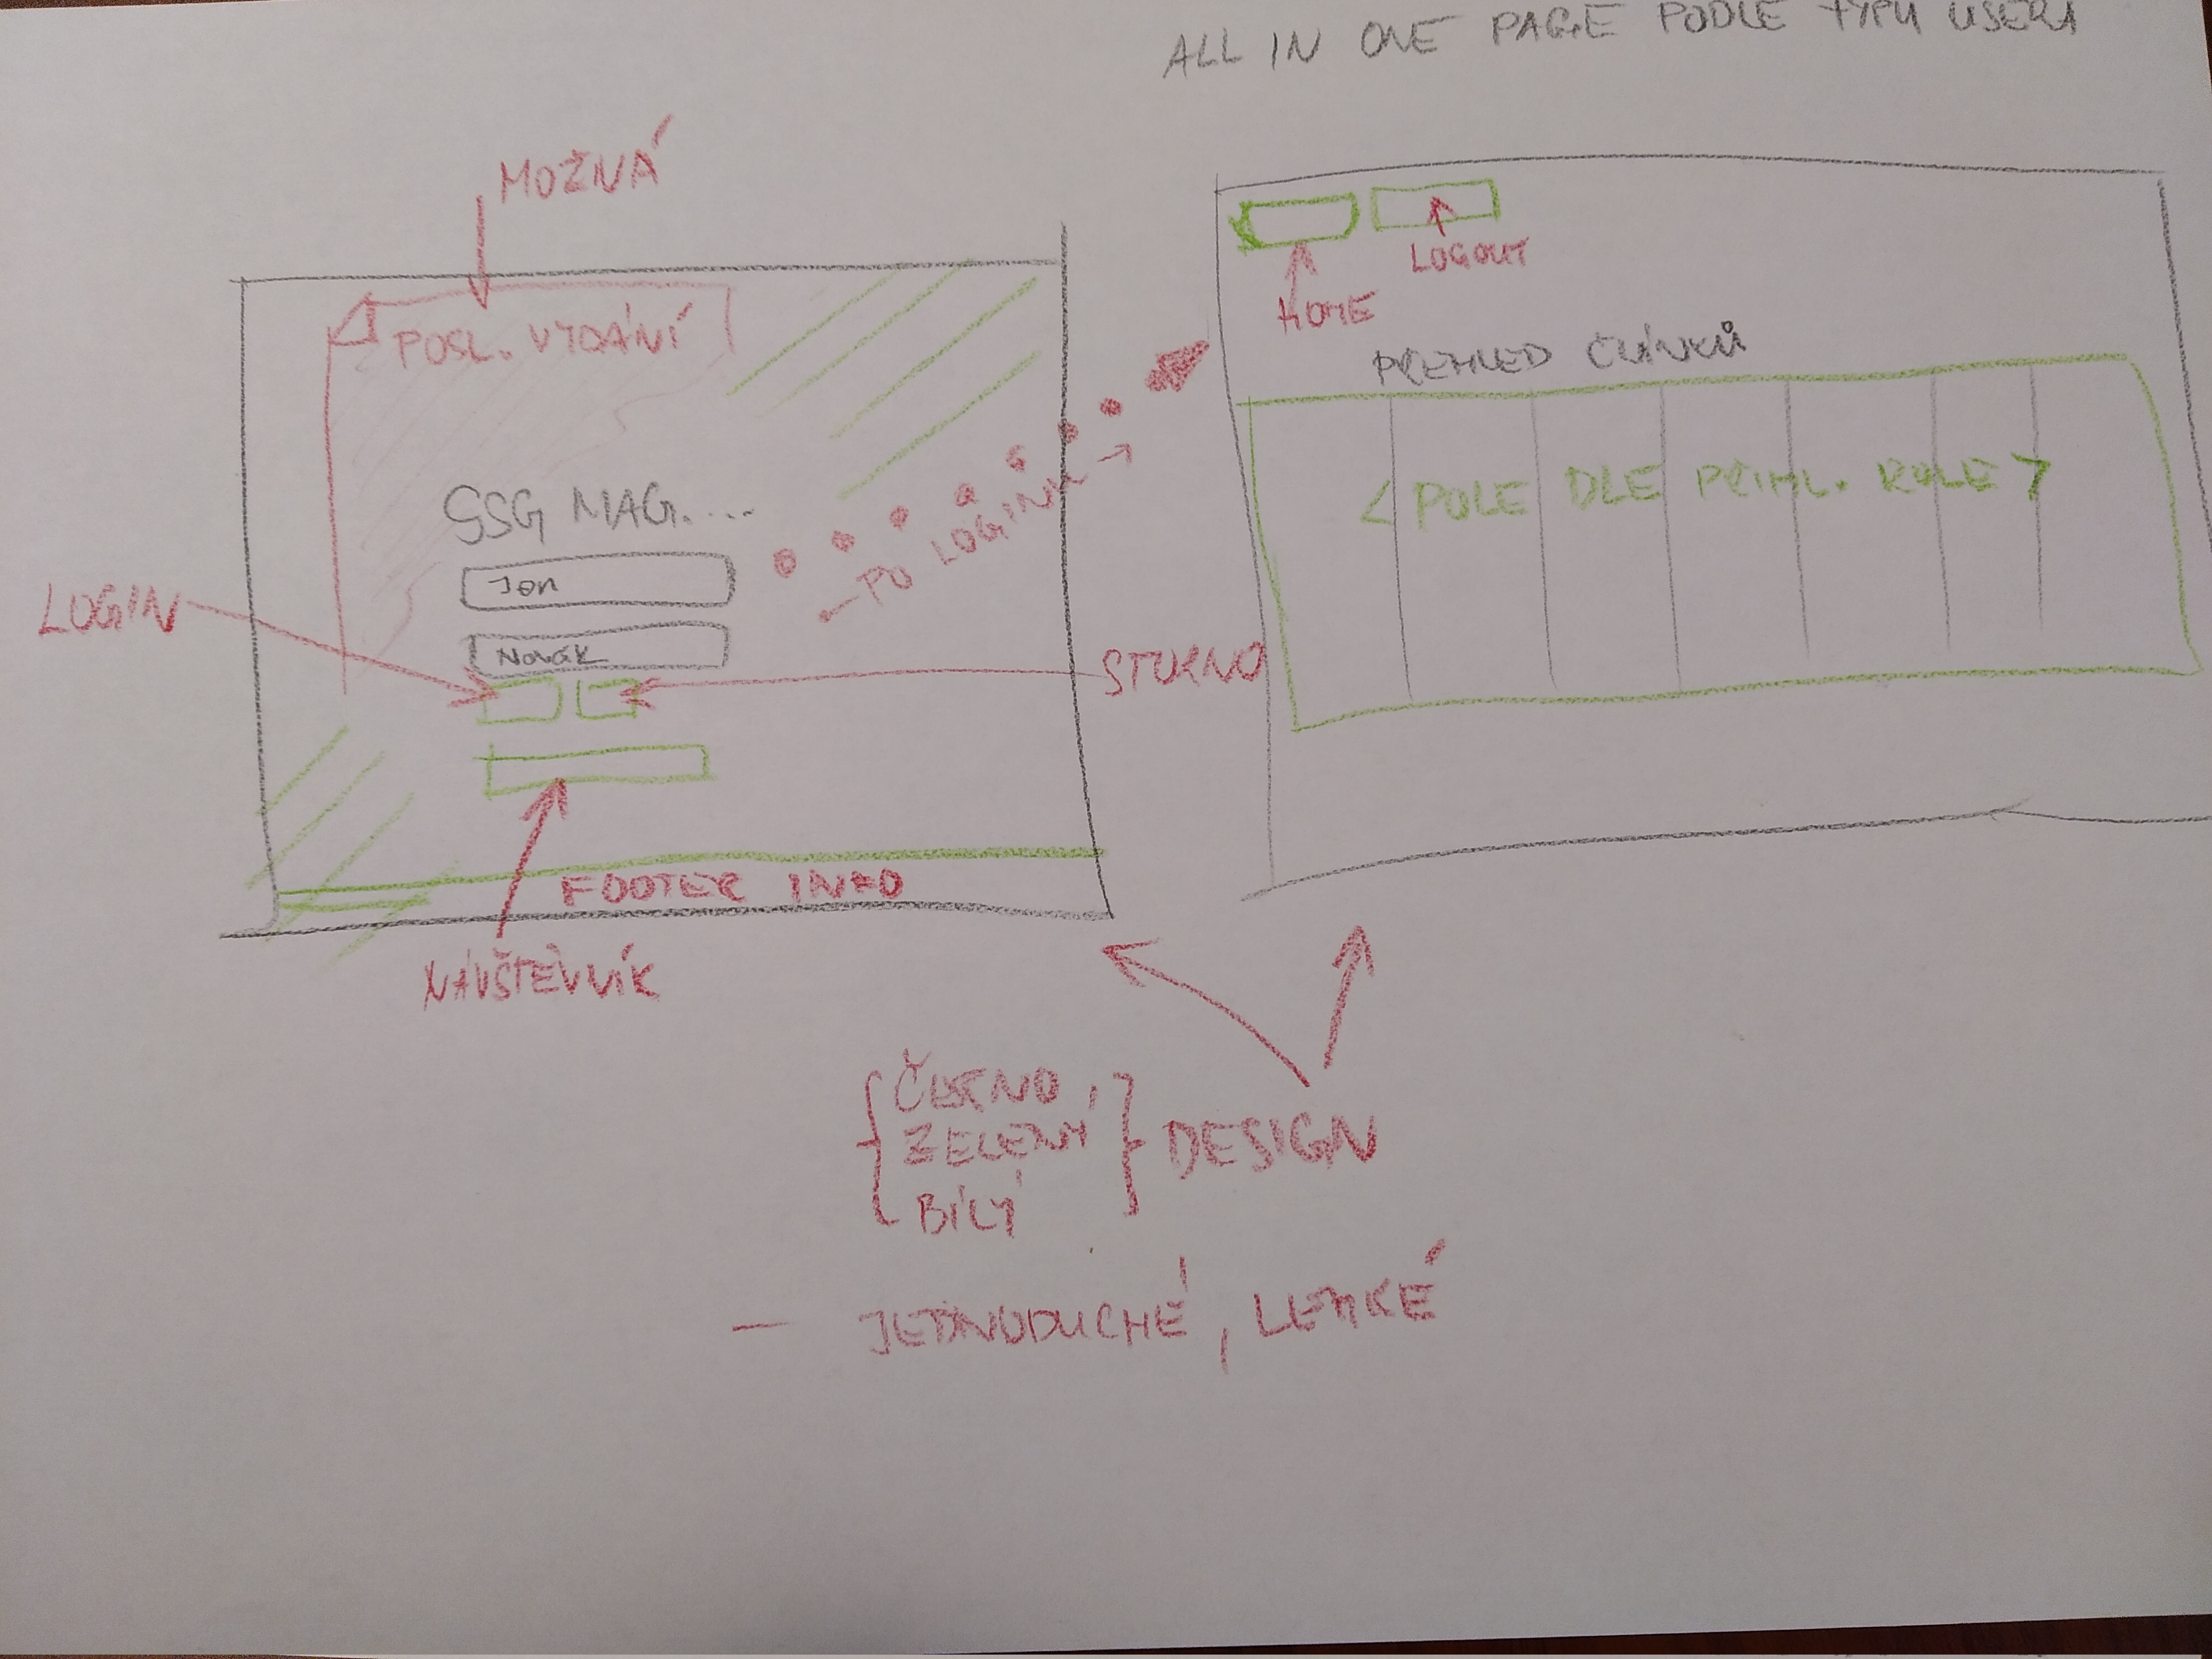 ALL IN ONE PAGE PODLE TYPU USERA
MOŽNÁ
POSL. VYDÁNÍ
SSG MAG....
Jon
Novák
LOGIN
STORNO
NÁVŠTĚVNÍK
FOOTER INFO
PO LOGINU
HOME
LOGOUT
PŘEHLED ČLÁNKŮ
< POLE DLE PŘIHL. ROLE >
ČERNO,
ZELENÝ
BÍLÝ
DESIGN
— JEDNODUCHÉ, LEHKÉ